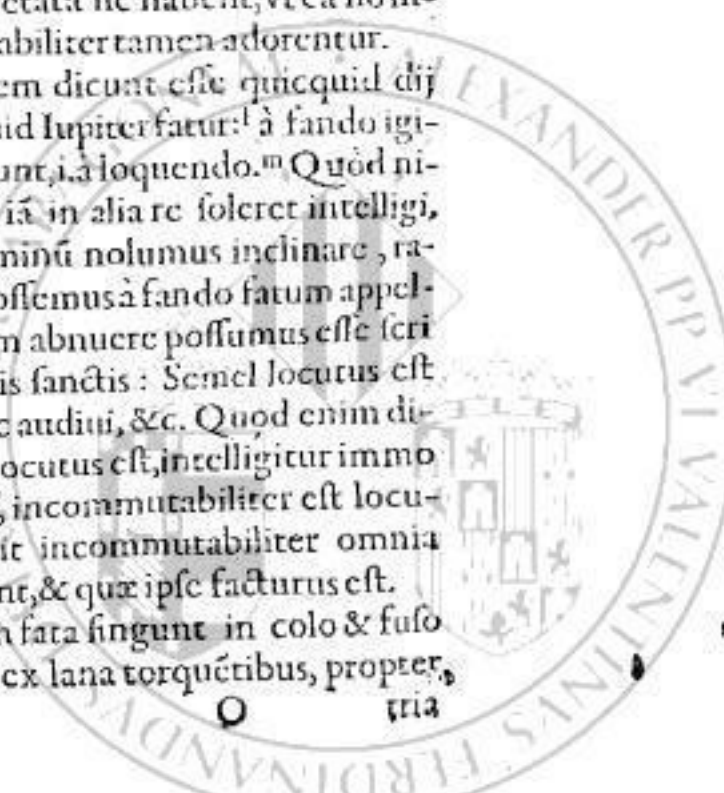 ctata ne habent, vt ea no m-
abiliter tamen adorentur.
em dicunt eſſe quicquid dij
uid Iupiter fatur:ˡ à fando igi-
unt,i.à loquendo.ᵐ Quòd ni-
iã in alia re ſoleret intelligi,
minũ nolumus inclinare, ra-
oſſemus à fando fatum appel-
m abnuere poſſumus eſſe ſcri
is ſanctis : Semel locutus eſt
c audiui, &c. Quod enim di-
ocutus eſt,intelligitur immo
, incommutabiliter eſt locu-
it incommutabiliter omnia
nt,& quæ ipſe facturus eſt.
n fata fingunt in colo & fuſo
ex lana torquẽtibus, propter
O tria
ALEXANDER PP VI VALENTINUS FERDINANDUS